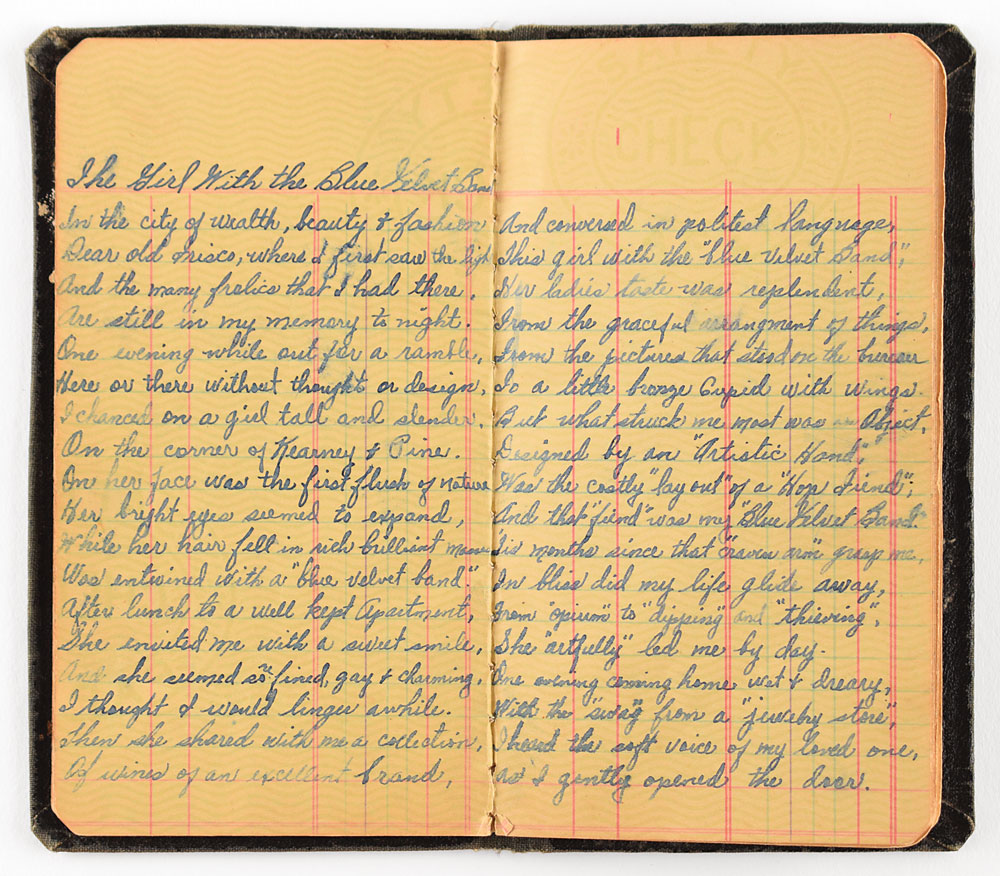 The Girl With the Blue Velvet Band
In the city of wealth, beauty & fashion
Dear old Frisco, where I first saw the light
And the many frolics that I had there,
Are still in my memory to night.
One evening while out for a ramble,
Here or there without thought or design,
I chanced on a girl tall and slender,
On the corner of Kearney & Pine.
On her face was the first flush of nature
Her bright eyes seemed to expand,
While her hair fell in rich brilliant masses
Was entwined with a "blue velvet band."
After lunch to a well kept Apartment,
She envited me with a sweet smile,
And she seemed so refined, gay & charming,
I thought I would linger awhile.
Then she shared with me a collection,
Of wines of an excellent brand,
SAFETY
CHECK
And conversed in politest language,
This girl with the "blue Velvet Band",
Her ladies taste was replendent,
From the graceful arrangment of things,
From the pictures that stood on the bureau
To a little bronze Cupid with wings.
But what struck me most was an Object,
Designed by an "Artistic Hand",
Was the costly "lay out" of a "Hop Fiend";
And that "fiend" was my "Blue Velvet Band."
Tis months since that "craven arm" grasp me,
In bliss did my life glide away,
From "opium" to "dipping" and "thieving",
She "artfully" led me by day.
One evening coming home wet & dreary,
With the "swag" from a "jewelry store",
I heard the soft voice of my loved one,
As I gently opened the door.